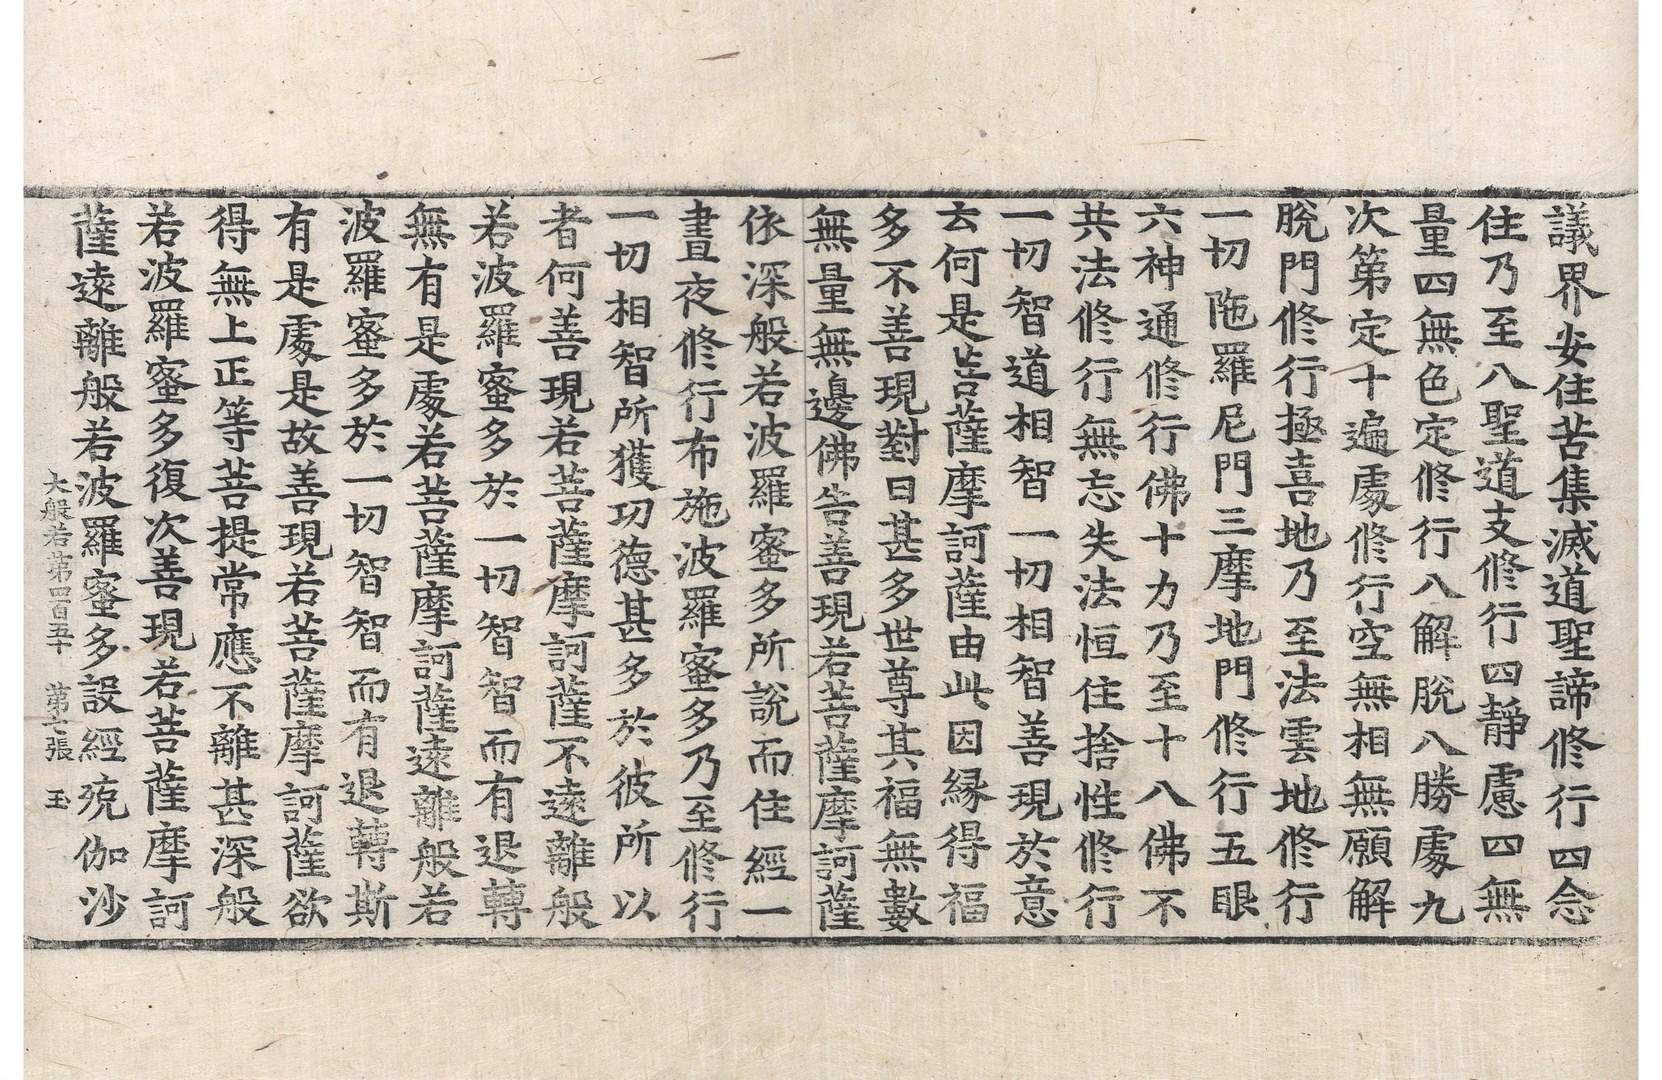 議界安住苦集滅道聖諦修行四念
住乃至八聖道支修行四靜慮四無
量四無色定修行八解脫八勝處九
次第定十遍處修行空無相無願解
脫門修行極喜地乃至法雲地修行
一切陁羅尼門三摩地門修行五眼
六神通修行佛十力乃至十八佛不
共法修行無忘失法恒住捨性修行
一切智道相智一切相智善現於意
云何是菩薩摩訶薩由此因緣得福
多不善現對曰甚多世尊其福無數
無量無邊佛告善現若菩薩摩訶薩
依深般若波羅蜜多所說而住經一
晝夜修行布施波羅蜜多乃至修行
一切相智所獲功德甚多於彼所以
者何善現若菩薩摩訶薩不遠離般
若波羅蜜多於一切智智而有退轉
無有是處若菩薩摩訶薩遠離般若
波羅蜜多於一切智智而有退轉斯
有是處是故善現若菩薩摩訶薩欲
得無上正等菩提常應不離甚深般
若波羅蜜多復次善現若菩薩摩訶
薩遠離般若波羅蜜多設經殑伽沙
大般若第四百五十 第六張 玉